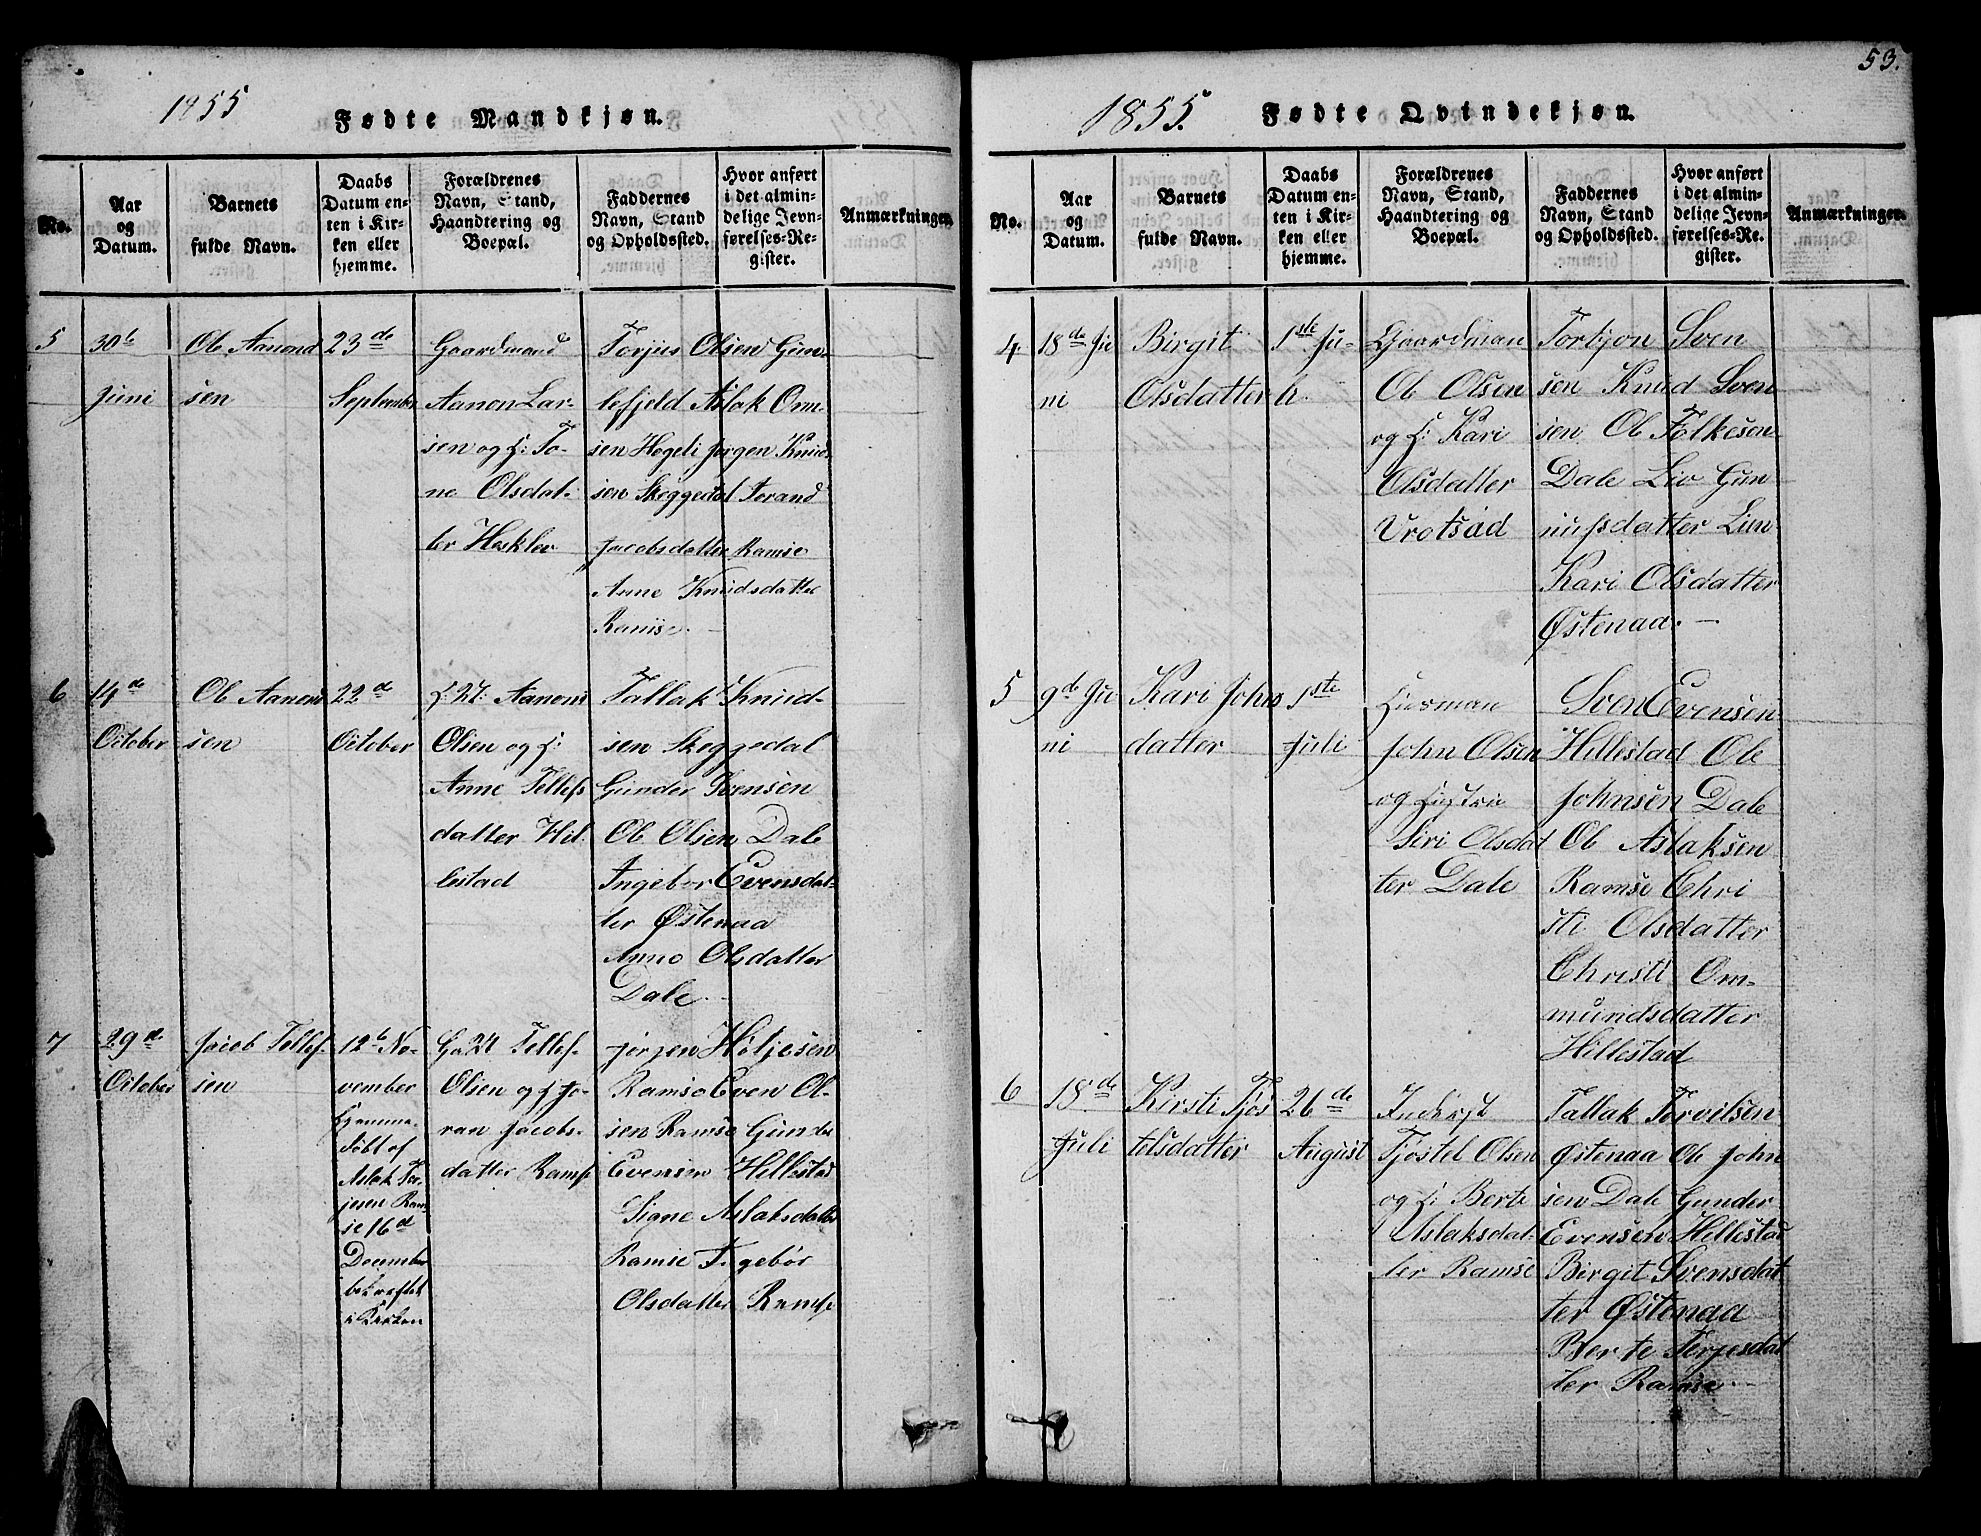 1855
Fødte Mandkjøn.
No.
Aar
og
Datum.
Barnets
fulde Navn.
Daabs
Datum en-
ten i Kir-
ken eller
hjemme.
Forældrenes
Navn, Stand,
Haandtering og
Boepæl.
Faddernes
Navn, Stand
og Opholdssted.
Hvor anført
i det almin-
delige Jevn-
førelses-Re-
gister.
Anmærkninger.
5
30te
Juni
Ole Aanond
sen
23de
September
Gaardmand
Aanon Lar-
sen og H: To-
ne Olsdat-
ter
Torjus Olsen Gun-
lefjeld Aslak Om-
sen Hegeli Jørgen Knud
sen Skeggedal
Jacobsdatter Ramse
Anne Knudsdatter
Ramse.
6
14de
October
Ole Aanond
sen
22de
October
Aanon
Olsen og
Anne Tellefs
datter Hil-
lestad
Tallak Knud-
sen Skeggedal
Gunder Svensen
Ole Olsen Dale
Ingebor Evensdat-
ter Østenaa
Anne Olsdatter
Dale.
7
29de
October
Jacob Tellef-
sen
12te No-
vember
Hjemme-
døbt af
Aslak Ter-
jesen Ram
se 16d
December
bekræftet
i Kirken
Tellef
Olsen og
ran Jacobs-
datter Ramse
Jørgen Høljesen
Ramse Even Ol-
sen Ramse Gunder
Evensen Hillestad
Signe Aslaksdatter
Ramse Ingebør
Olsdatter Ramse
53.
1855.
Fødte Qvindekjøn.
No.
Aar
og
Datum.
Barnets
fulde Navn.
Daabs
Datum en-
ten i Kir-
ken eller
hjemme.
Forældrenes
Navn, Stand,
Haandtering og
Boepæl.
Faddernes
Navn, Stand
og Opholdssted.
Hvor anført
i det almin-
delige Jevn-
førelses-Re-
gister.
Anmærkninger.
4
18de Ju
ni
Birgit
Olsdatter
1ste Ju-
li.
Gaardman
Ole Olsen
og H: Kari
Olsdatter
Vrotsád
Torbjon Sven
sen Knud Sven
sen Ole Folkesen
Dale Liv Gun
nufsdatter Lien
Kari Olsdatter
Østenaa.
5
9de Ju
ni
Kari Johns
datter
1ste
Juli
Husman
John Olsen
og Hustrue
Siri Olsdat
ter Dale
Sven Evensen
Hillestad Ole
Johnsen Dale
Ole Aslaksen
Ramse Chri
sti Olsdatter
Christi Om-
mundsdatter
Hillestad
6
18de
Juli
Kirsti Tjøs
tolsdatter
26de
August
Inderst
Tjøstel Olsen
og H: Berte
Aslaksdat-
ter Ramse
Tallak Torvilsen
Østenaa Ole John
sen Dale Gunder
Evensen Hillestad
Birgit Svensdat
ter Østenaa
Berte Terjesdat
ter Ramse.